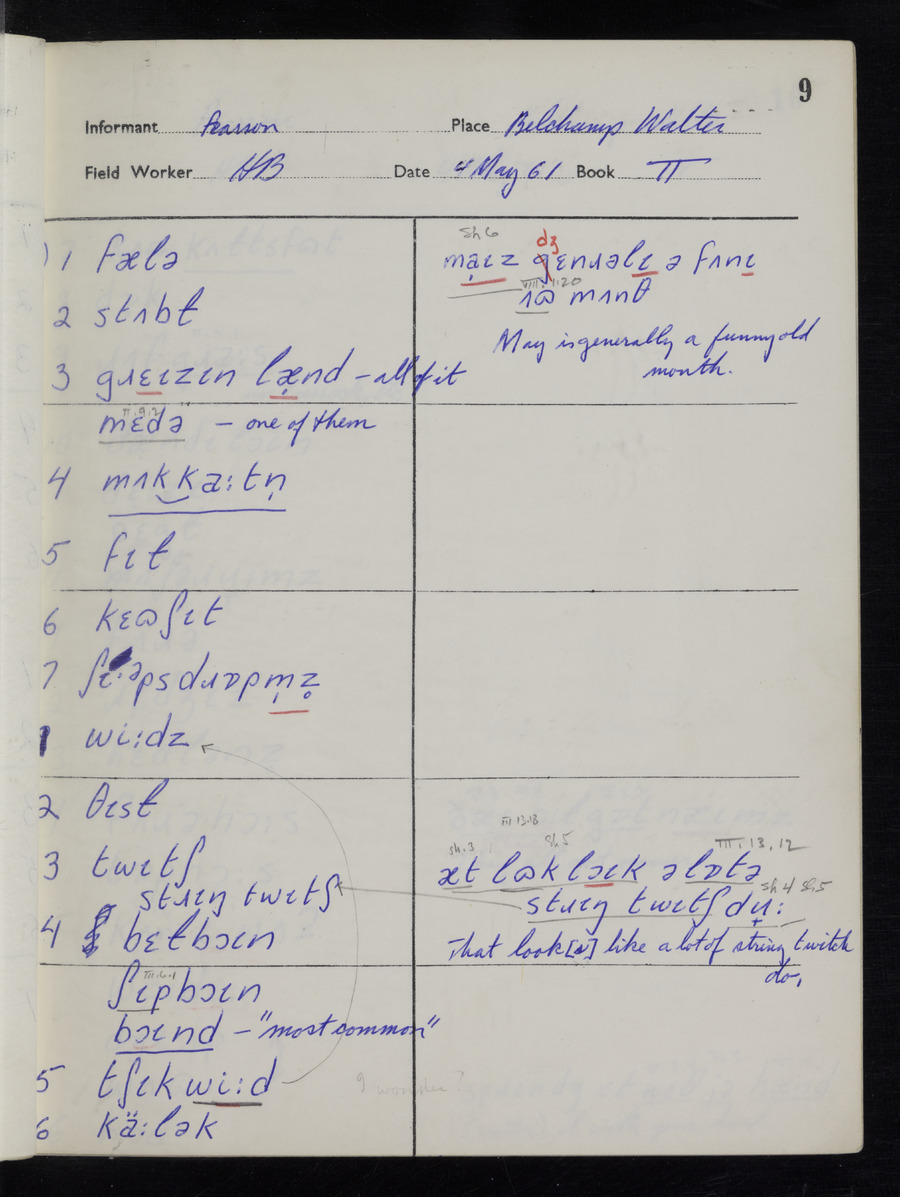 9
Informant Pearson Place Belchamp Walter
Field Worker HB Date 4 May 61 Book II
1 fælə
2 stʌbt
3 gɹɛɪzɪn lænd – all of it
II.9.2
mɛdə – one of them
4 mʌkkaːtn̩
5 fɪt
6 kɛɷʃɪt
7 ʃɪːəpsdɹɒpm̩z̥
1 wiːdz
2 θɪst
3 twɪtʃ
stɹɪŋ twɪtʃ
4 bɛlbɔɪn
III.6.1
ʃɪpbɔɪn
bɔɪnd – "most common"
5 tʃɪk wiːd
6 käːlək
sh 6
dʒ
ma̤ɪz gɛnɹəlɪ ə fʌnɪ
VIII.1.20
ɹɷ mʌnθ
May is generally a funny old
month.
III 13.18
sh.3 sh5 III.13.12
æt lɷk lɔɪk əlɒtə
sh 4 sh.5
stɹɪŋ twɪtʃ dʉː
That look[s] like a lot of string twitch
do,
I wonder?